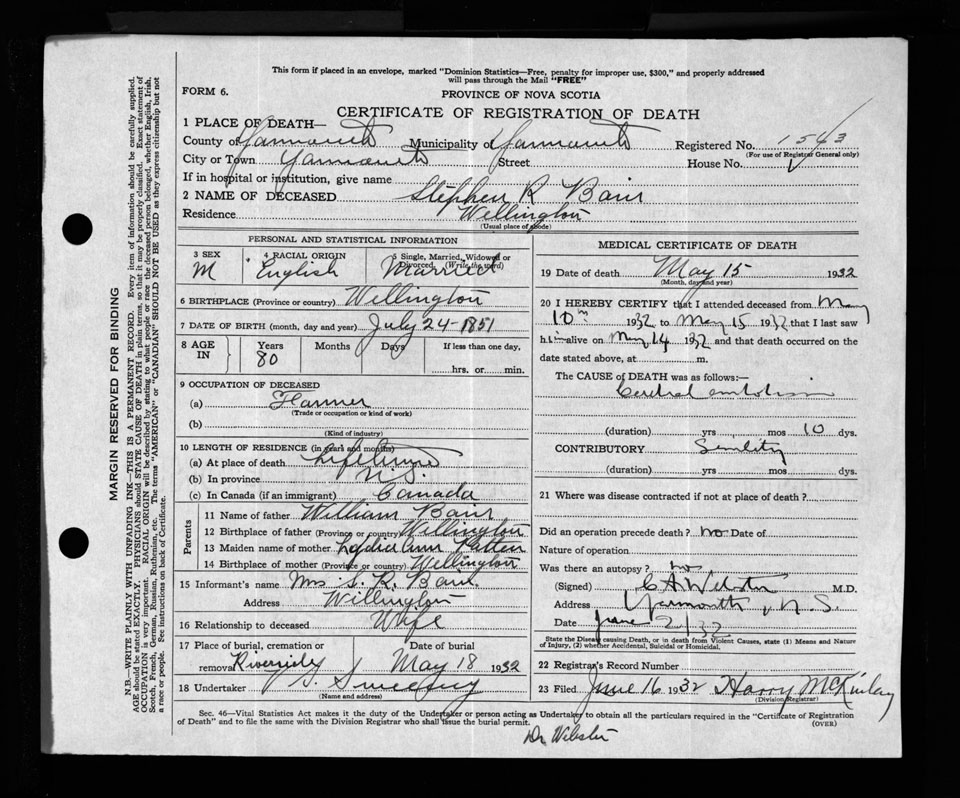 This form if placed in an envelope, marked "Dominion Statistics—Free, penalty for improper use, $300," and properly addressed
will pass through the Mail "FREE"
FORM 6.
PROVINCE OF NOVA SCOTIA
CERTIFICATE OF REGISTRATION OF DEATH
1 PLACE OF DEATH—
County of Yarmouth Municipality of Yarmouth Registered No. 1543
(For use of Registrar General only)
City or Town Yarmouth Street House No.
If in hospital or institution, give name
2 NAME OF DECEASED Stephen R Bain
Residence Wellington
(Usual place of abode)
PERSONAL AND STATISTICAL INFORMATION
3 SEX M
4 RACIAL ORIGIN English
5 Single, Married, Widowed or Divorced. (Write the word) Married
6 BIRTHPLACE (Province or country) Wellington
7 DATE OF BIRTH (month, day and year) July 24-1851
8 AGE IN Years 80 Months Days If less than one day, hrs. or min.
9 OCCUPATION OF DECEASED
(a) Farmer
(Trade or occupation or kind of work)
(b)
(Kind of industry)
10 LENGTH OF RESIDENCE (in years and months)
(a) At place of death Lifetime
(b) In province N.S.
(c) In Canada (if an immigrant) Canada
Parents
11 Name of father William Bain
12 Birthplace of father (Province or country) Wellington
13 Maiden name of mother Lydia Ann Patten
14 Birthplace of mother (Province or country) Wellington
15 Informant's name Mrs. S. R. Bain.
Address Wellington
16 Relationship to deceased Wife
17 Place of burial, cremation or removal Riverside
Date of burial May 18 1932
18 Undertaker Sweeney
(Name and address)
MEDICAL CERTIFICATE OF DEATH
19 Date of death May 15 1932
(Month, day and year)
20 I HEREBY CERTIFY that I attended deceased from May
10th 1932 to May 15 1932 that I last saw
him alive on May 14 1932 and that death occurred on the
date stated above, at m.
The CAUSE of DEATH was as follows:—
Cerebral embolism
(duration) yrs mos 10 dys.
CONTRIBUTORY Senility
(duration) yrs mos dys.
21 Where was disease contracted if not at place of death?
Did an operation precede death? no Date of
Nature of operation
Was there an autopsy? no
(Signed) C A Webster M.D.
Address Yarmouth, N.S.
Date June 2/32
State the Disease causing Death, or in death from Violent Causes, state (1) Means and Nature
of Injury, (2) whether Accidental, Suicidal or Homicidal.
22 Registrar's Record Number
23 Filed June 16 1932 Harry McKinlay
(Division Registrar)
Sec. 46—Vital Statistics Act makes it the duty of the Undertaker or person acting as Undertaker to obtain all the particulars required in the "Certificate of Registration
of Death" and to file the same with the Division Registrar who shall issue the burial permit.
(OVER)
Dr Webster
MARGIN RESERVED FOR BINDING
N.B.—WRITE PLAINLY WITH UNFADING INK—THIS IS A PERMANENT RECORD. Every item of information should be carefully supplied.
AGE should be stated EXACTLY. PHYSICIANS should STATE CAUSE OF DEATH in plain terms, so that it may be properly classified. Exact statement of
OCCUPATION is very important. RACIAL ORIGIN will be described by stating to what people or race the deceased person belonged, whether English, Irish,
Scotch, French, German, Russian, Ruthenian, etc. The terms "AMERICAN" or "CANADIAN" SHOULD NOT BE USED as they express citizenship but not
a race or people. See instructions on back of Certificate.